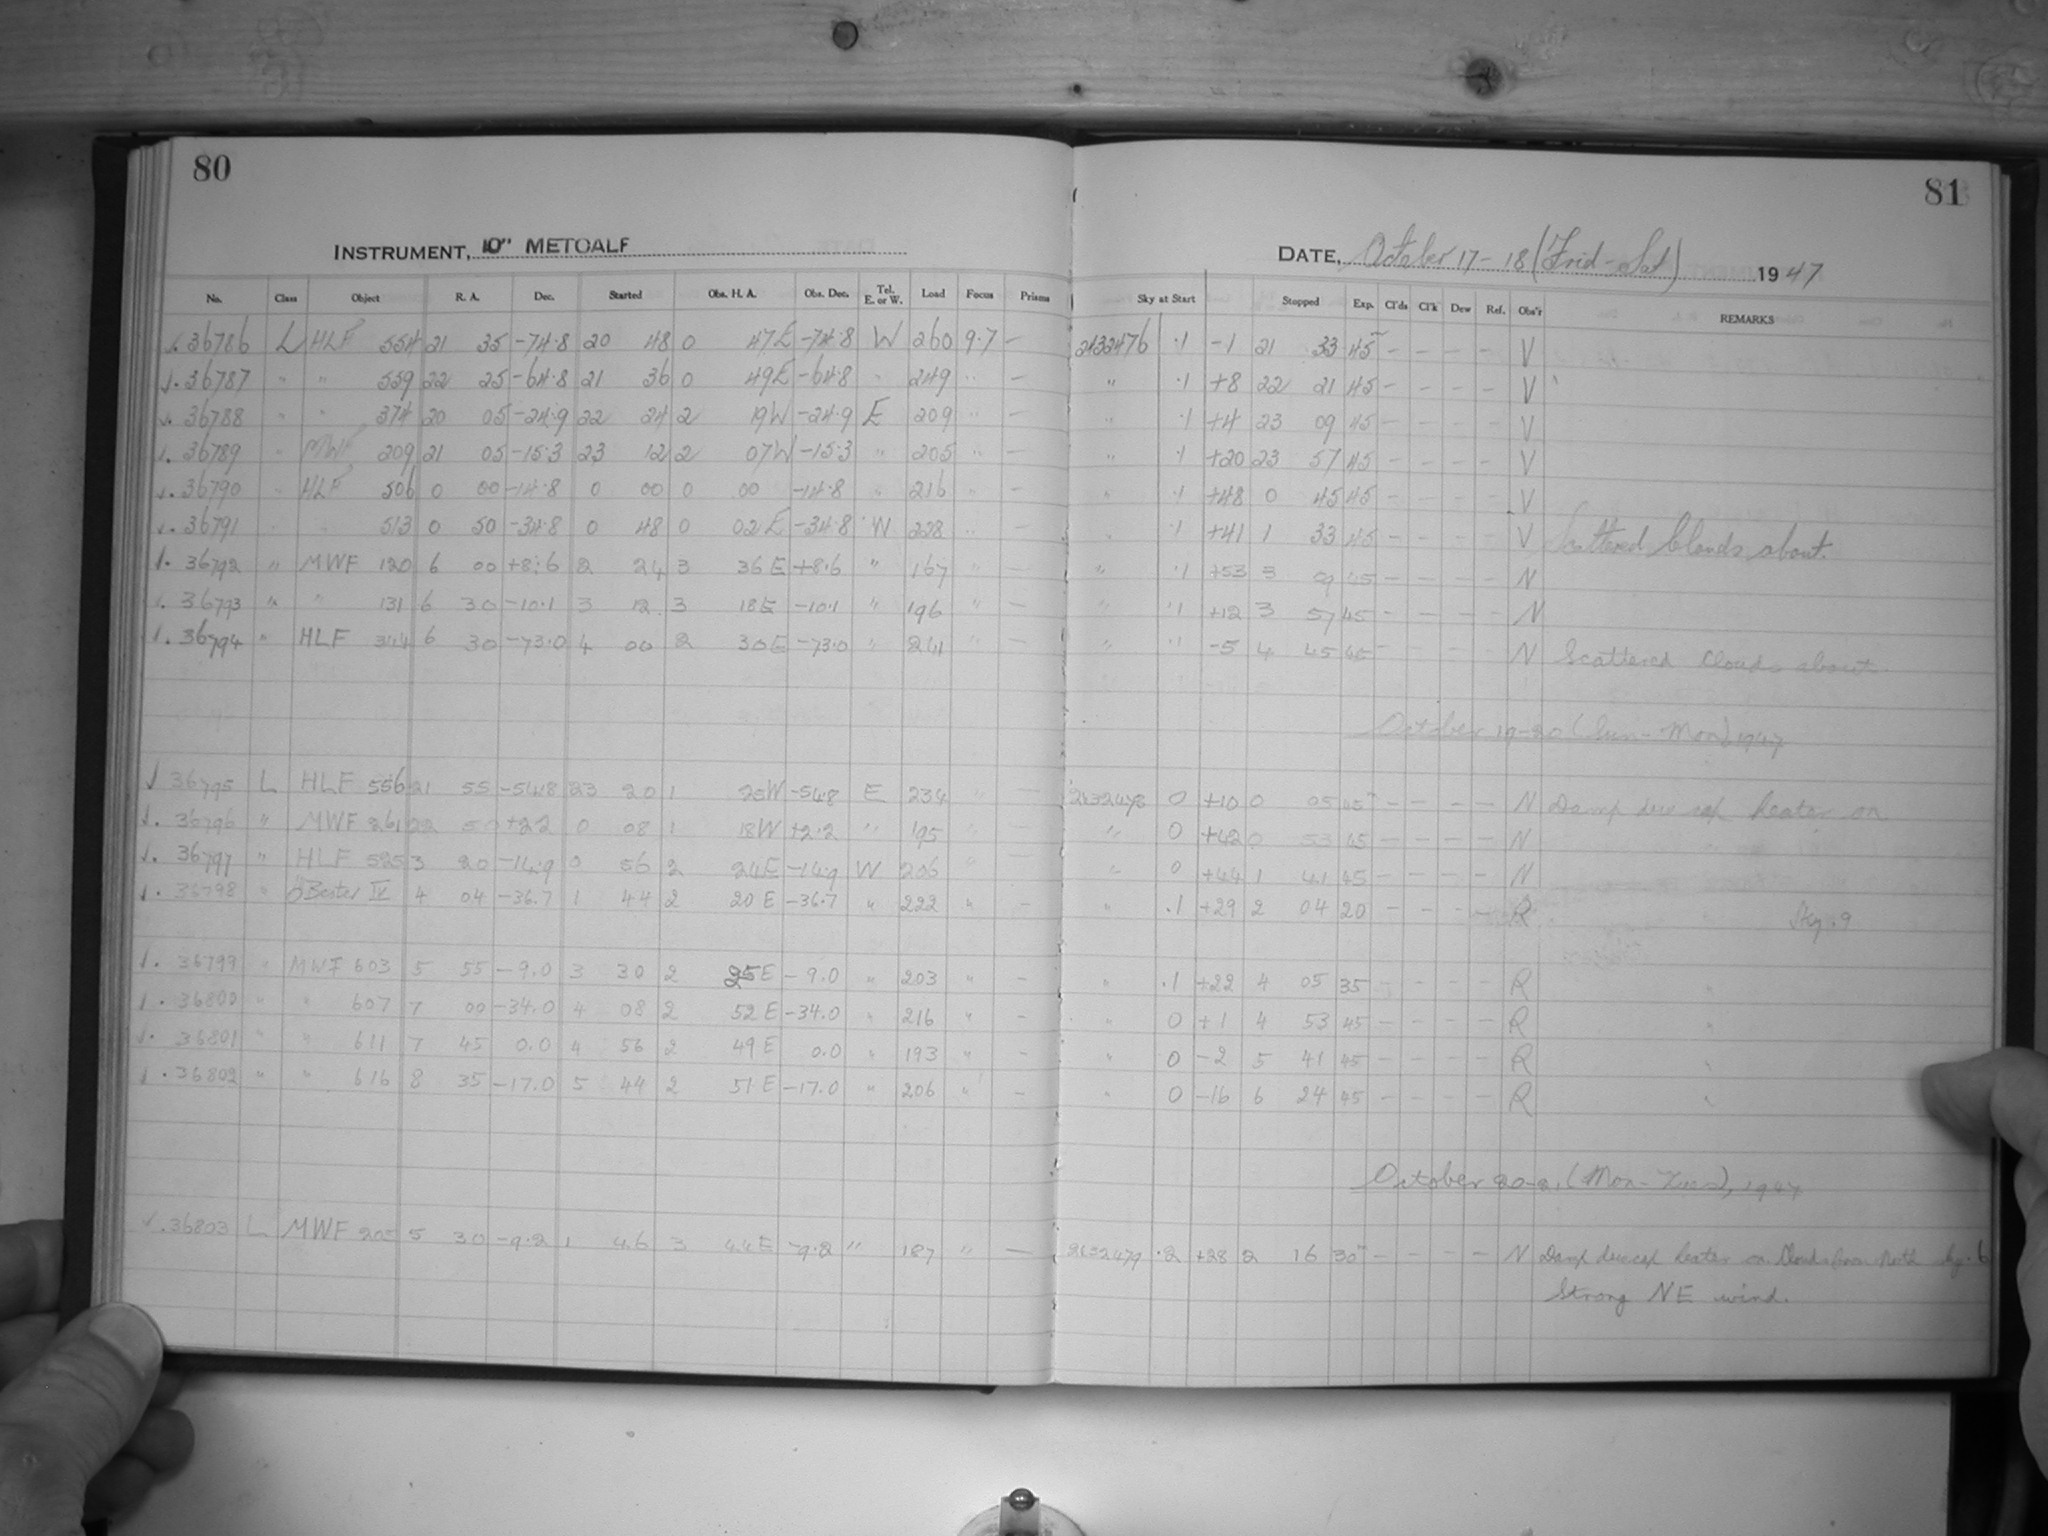 80
INSTRUMENT, 10" METCALF
No. Class Object R. A. Dec. Started Obs. H. A. Obs. Dec. Tel. E. or W. Load Focus Prisms
√. 36786 L HLF 554 21 35 -74.8 20 48 0 47E -74.8 W 260 9.7 -
√. 36787 " " 559 22 25 -64.8 21 36 0 49E -64.8 " 249 " -
√. 36788 " " 374 20 05 -24.9 22 24 2 19W -24.9 E 209 " -
√. 36789 " MWF 209 21 05 -15.3 23 12 2 07W -15.3 " 205 " -
√. 36790 " HLF 506 0 00 -14.8 0 00 0 00 -14.8 " 216 " -
√. 36791 " " 513 0 50 -34.8 0 48 0 02E -34.8 W 228 " -
√. 36792 " MWF 120 6 00 +8.6 2 24 3 36E +8.6 " 167 " -
√. 36793 " " 131 6 30 -10.1 3 12 3 18E -10.1 " 196 " -
√. 36794 " HLF 344 6 30 -73.0 4 00 2 30E -73.0 " 241 " -
√ 36795 L HLF 556 21 55 -54.8 23 20 1 25W -54.8 E 234 " -
√. 36796 " MWF 261 22 50 +2.2 0 08 1 18W +2.2 " 195 " -
√. 36797 " HLF 525 3 20 -14.9 0 56 2 24E -14.9 W 206 " -
√. 36798 " Bester IV 4 04 -36.7 1 44 2 20E -36.7 " 222 " -
√. 36799 " MWF 603 5 55 -9.0 3 30 2 25E -9.0 " 203 " -
√. 36800 " " 607 7 00 -34.0 4 08 2 52E -34.0 " 216 " -
√. 36801 " " 611 7 45 0.0 4 56 2 49E 0.0 " 193 " -
√. 36802 " " 616 8 35 -17.0 5 44 2 51E -17.0 " 206 " -
√. 36803 L MWF 5 30 -9.2 1 46 3 44E -9.2 " 187 " -
81
DATE, October 17-18 (Frid-Sat) 1947
Sky at Start Stopped Exp. Cl'ds Cl'k Dew Ref. Obs'r REMARKS
2432476 .1 -1 21 33 45m - - - - V
" .1 +8 22 21 45 - - - - V
" .1 +4 23 09 45 - - - - V
" .1 +20 23 57 45 - - - - V
" .1 +48 0 45 45 - - - - V
" .1 +41 1 33 45 - - - - V Scattered Clouds about.
" .1 +53 3 09 45 - - - - N
" .1 +12 3 57 45 - - - - N
" .1 -5 4 45 45 - - - - N Scattered Clouds about
October 19-20 (Sun-Mon) 1947
2432478 0 +10 0 05 45m - - - - N Damp dew cap heater on
" 0 +42 0 53 45 - - - - N
" 0 +44 1 41 45 - - - - N
" .1 +29 2 04 20 - - - - R Sky .9
" .1 +22 4 05 35 - - - - R "
" 0 +1 4 53 45 - - - - R "
" 0 -2 5 41 45 - - - - R "
" 0 -16 6 24 45 - - - - R "
October 20-21 (Mon-Tues), 1947
2432479 .2 +28 2 16 30m - - - - N Damp dewcap heater on. Clouds from North sky .6
Strong NE wind.